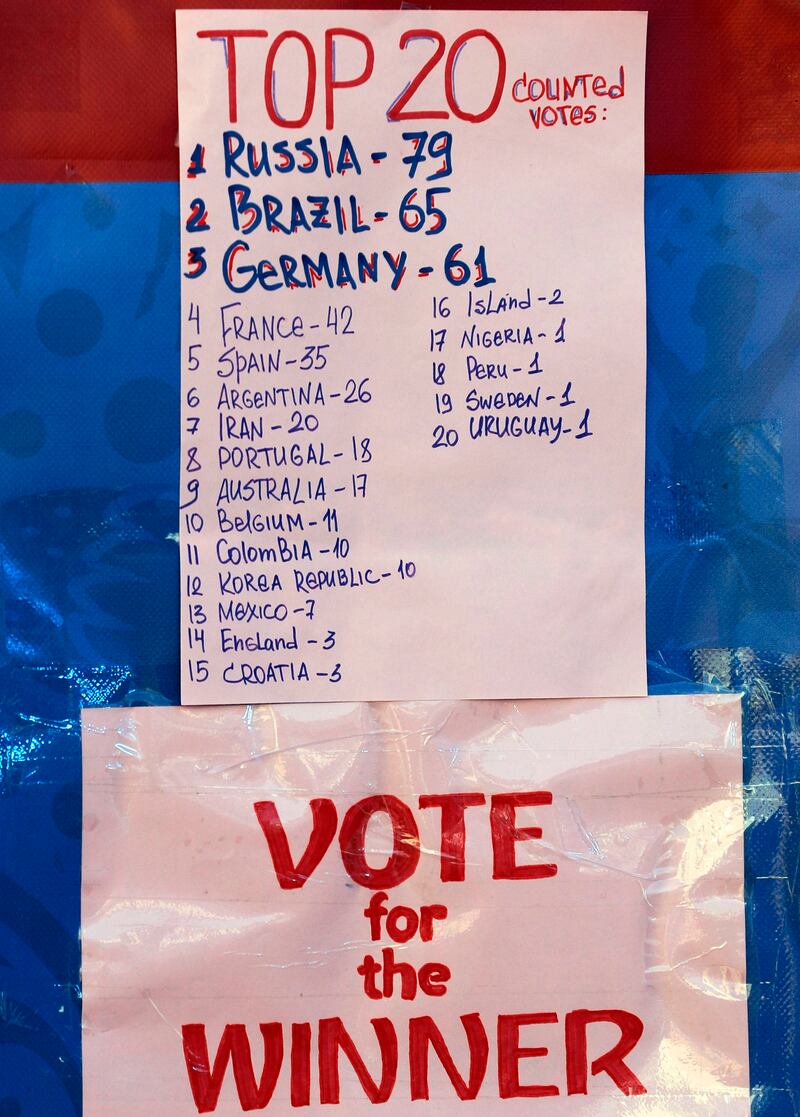 TOP 20 COUNTed
VOTes:
1 RUSSIA - 79
2 BRAZIL - 65
3 GeRMANY - 61
4 FRANCe - 42
5 SPAIN - 35
6 ARGeNTINA - 26
7 IRAN - 20
8 PORTUGAL - 18
9 AUSTRALIA - 17
10 BelGIUM - 11
11 ColomBIA - 10
12 KOReA RePUBLIC - 10
13 MeXICO - 7
14 England - 3
15 CROATIA - 3
16 ISLANd - 2
17 NIGeRIA - 1
18 PeRU - 1
19 SWeDeN - 1
20 URUGUAY - 1
VOTE
for
the
WINNER